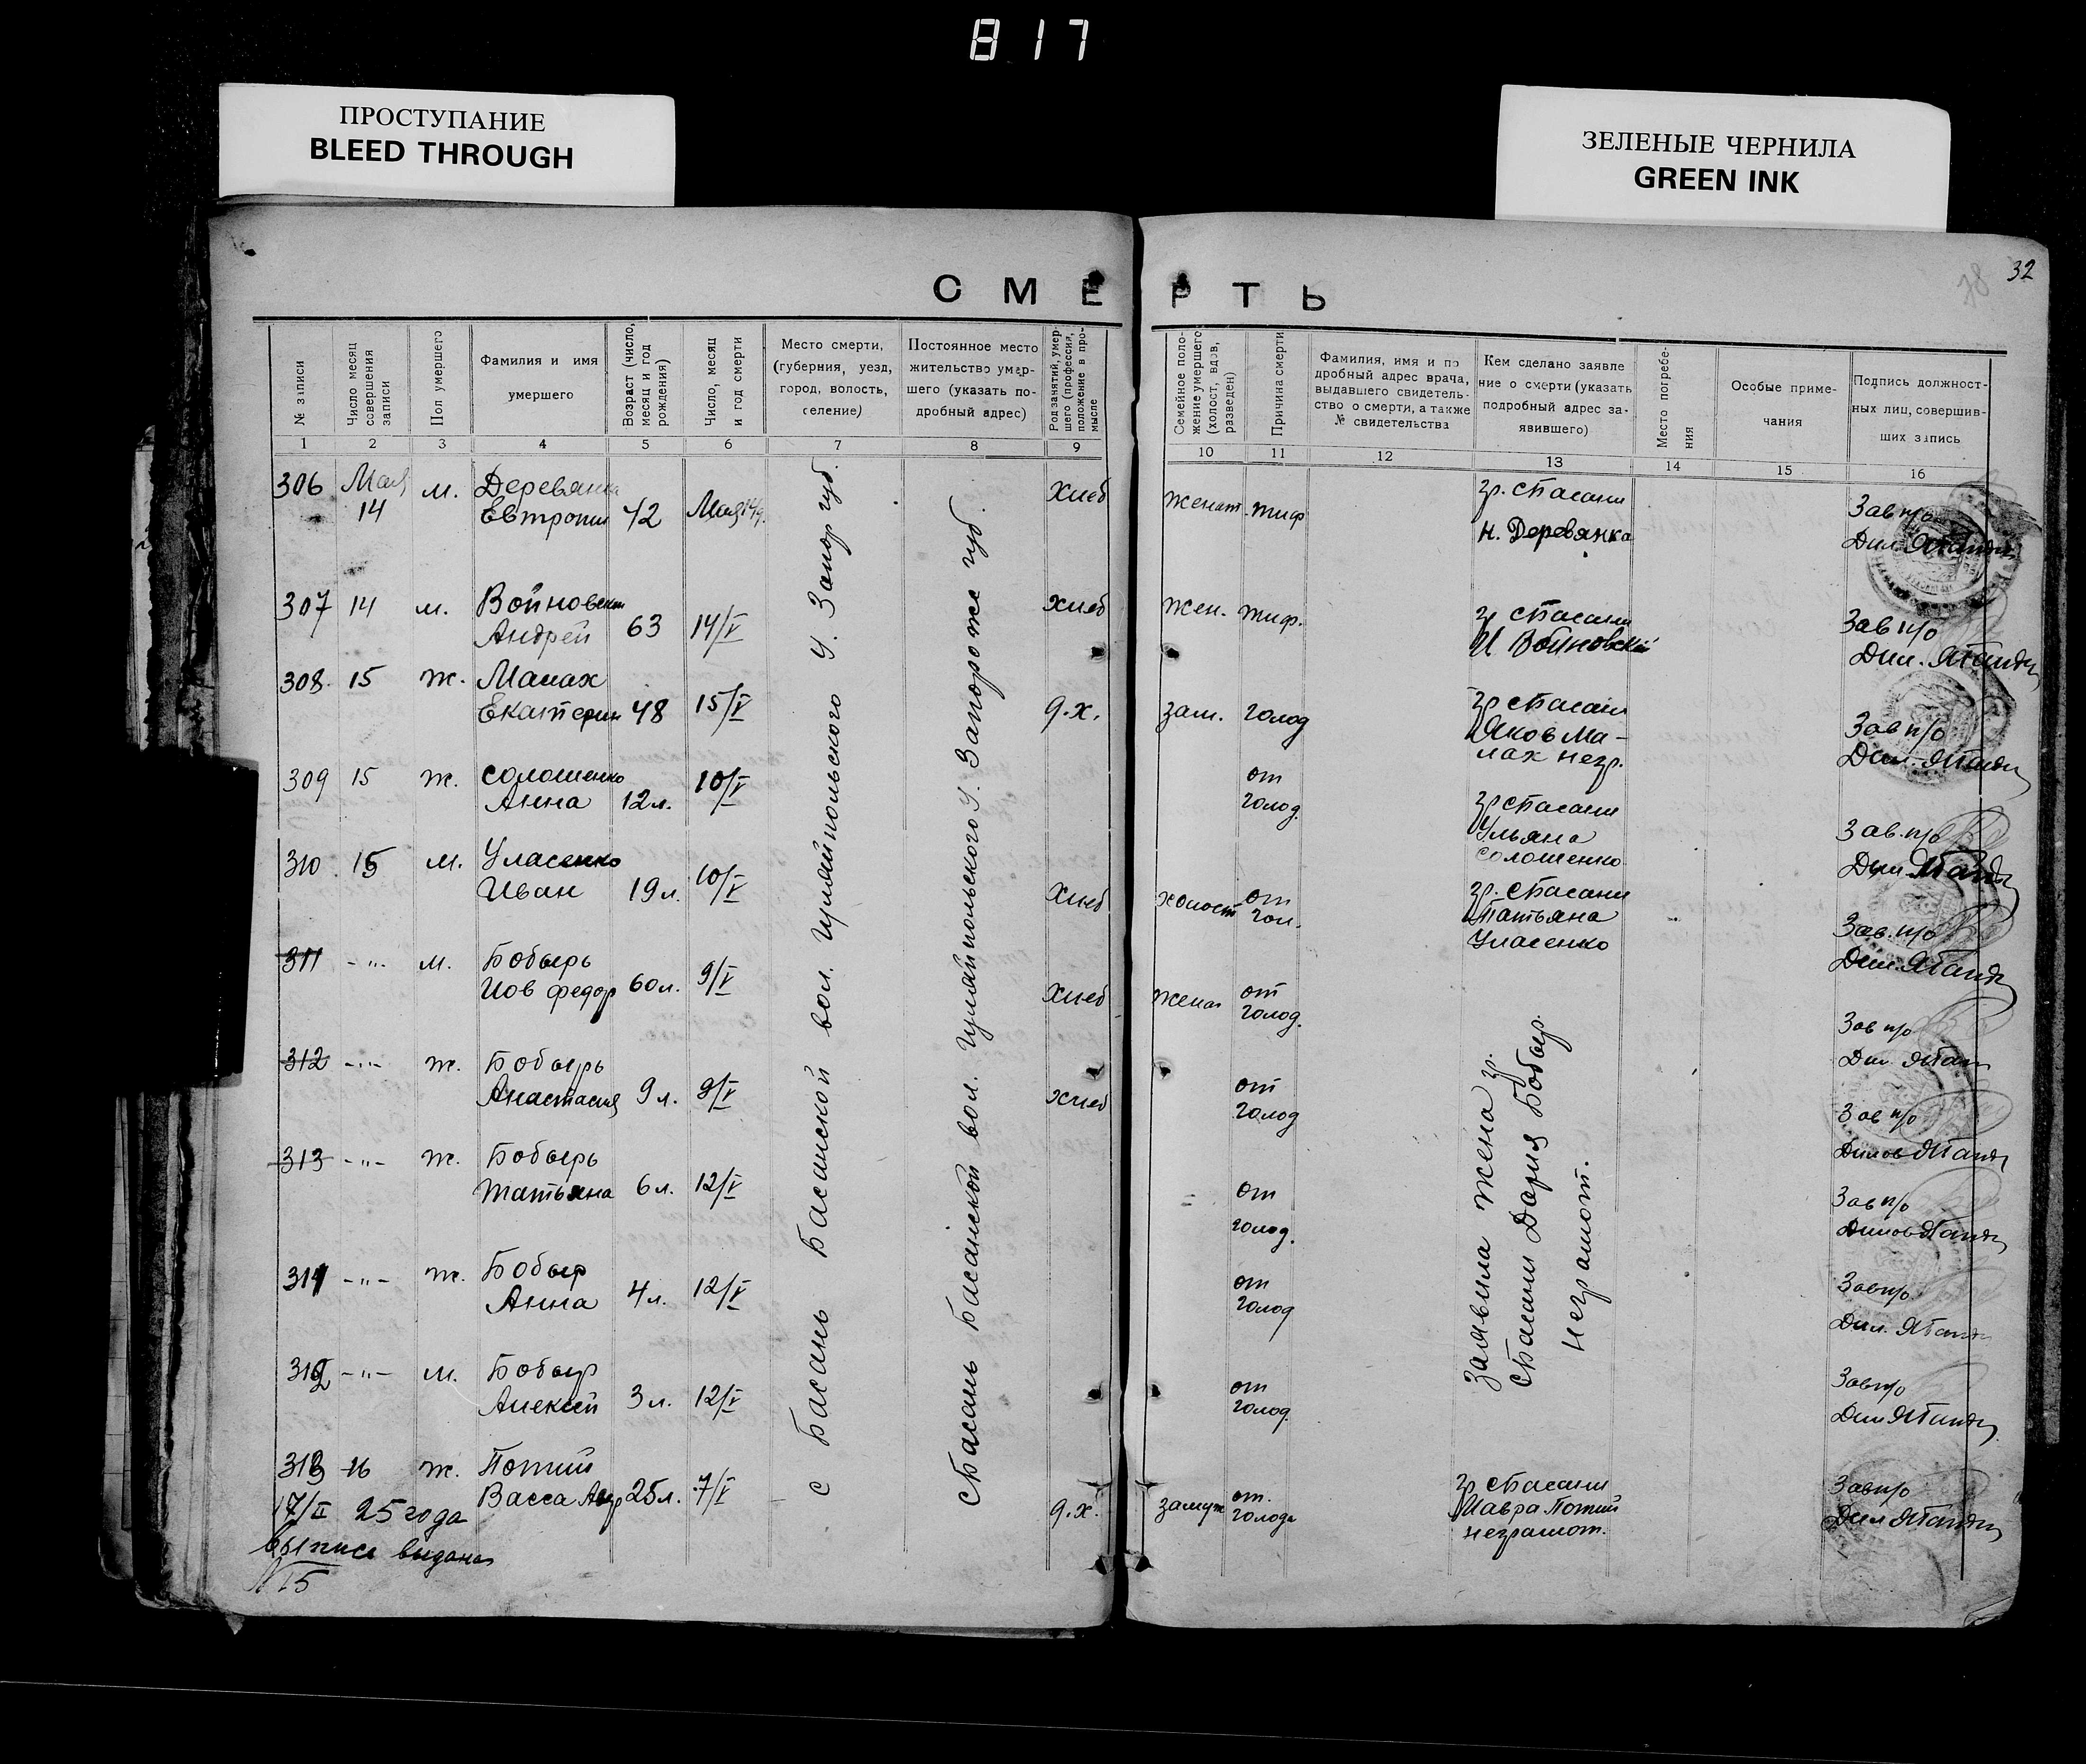 817
ПРОСТУПАНИЕ
BLEED THROUGH
ЗЕЛЕНЫЕ ЧЕРНИЛА
GREEN INK
32
СМЕРТЬ
№ записи
Число месяц совершения записи
Пол умершего
Фамилия и имя умершего
Возраст (число, месяц и год рождения)
Число, месяц и год смерти
Место смерти, (губерния, уезд, город, волость, селение)
Постоянное место жительство умершего (указать подробный адрес)
Род занятий, умершего (профессия, положение в промысле
Семейное положение умершего (холост, вдов, разведен)
Причина смерти
Фамилия, имя и подробный адрес врача, выдавшего свидетельство о смерти, а также № свидетельства
Кем сделано заявление о смерти (указать подробный адрес заявившего)
Место погребения
Особые примечания
Подпись должностных лиц, совершивших запись
1 2 3 4 5 6 7 8 9 10 11 12 13 14 15 16
306 Мая 14 м. Деревянка Евтропий 42 Мая 14 хлеб женат тиф гр. с Басани Н. Деревянка Зав п/о
307 14 м. Войновский Андрей 63 14/V хлеб жен. тиф. гр с Басани И Войновский Зав п/о
308 15 ж. Малах Екатерин 48 15/V д.х. зам. голод гр с Басани Яков Малах негр. Зав п/о
309 15 ж. Солошенко Анна 12 л. 10/V от голод. гр с Басани Ульяна Солошенко Зав. п/о
310 15 м. Уласенко Иван 19 л. 10/V хлеб холост от гол. гр. с Басани Татьяна Уласенко Зав. п/о
311 -"- м. Бобырь Иов Федор 60 л. 9/V хлеб женат от голод. Зав п/о
312 -"- ж. Бобырь Анастасия 9 л. 9/V хлеб от голод Зав п/о
313 -"- ж. Бобырь Татьяна 6 л. 12/V от голод. Зав п/о
311 -"- ж. Бобыр Анна 4 л. 12/V от голод Зав п/о
312 -"- м. Бобыр Алексей 3 л. 12/V от голод. Зав п/о
313 16 ж. Потий Васса 25 л. 7/V д.х. замуж от голода гр с Басани Мавра Потий неграмот. Зав п/о
с Басань Басанской вол. Гуляйпольского у. Запор губ.
с Басань Басанской вол. Гуляйпольского у. Запороже губ.
Заявила жена гр.
с Басани Дария Бобыр.
неграмот.
17/II 25 года
выписс выдана
N 15